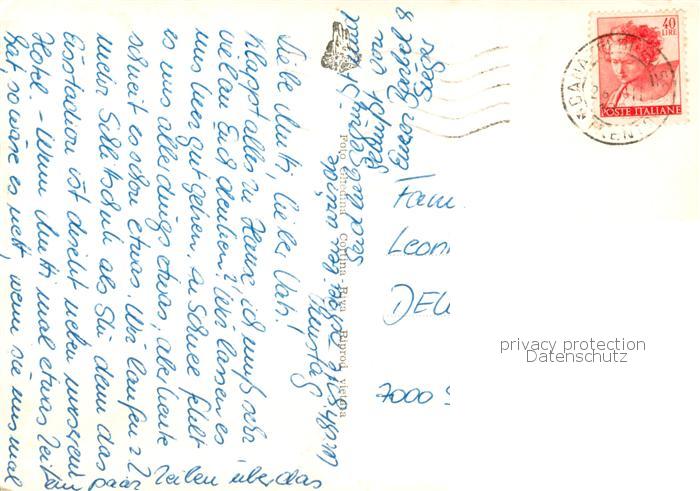 Liebe Mutti, lieber Vati!
Klappt alles zu Hause, ich muß sehr
viel an Euch denken! Wir lassen es
uns hier gut gehen. An Schnee fehlt
es uns allerdings etwas, aber heute
schneit es schon etwas. Wir laufen z.Z.
mehr Schlittschuh als Ski denn das
Eisstadion ist direkt neben unserem
Hotel. - Wenn Mutti mal etwas Zeit
hat, so wäre es nett, wenn sie uns mal
ein paar Zeilen über das
Seid lieb gegrüßt und
geküßt von
Eurer Bärbel &
Foto Ghedina Cortina Riva Riprod. vietata
40
LIRE
POSTE ITALIANE
Fam
Leon
DEU
7000
privacy protection
Datenschutz